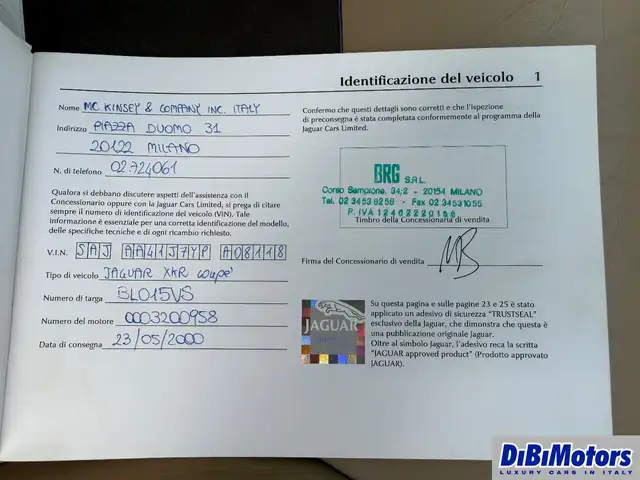 Identificazione del veicolo 1
Nome MC. KINSEY & COMPANY INC. ITALY
Indirizzo PIAZZA DUOMO 31
20122 MILANO
N. di telefono 02.724061
Qualora si debbano discutere aspetti dell'assistenza con il
Concessionario oppure con la Jaguar Cars Limited, si prega di citare
sempre il numero di identificazione del veicolo (VIN). Tale
informazione è essenziale per una corretta identificazione del modello,
delle specifiche tecniche e di ogni ricambio richiesto.
V.I.N. SAJ AA41J7YP A08118
Tipo di veicolo JAGUAR XKR coupe'
Numero di targa BL015VS
Numero del motore 0003200958
Data di consegna 23/05/2000
Confermo che questi dettagli sono corretti e che l'ispezione
di preconsegna è stata completata conformemente al programma della
Jaguar Cars Limited.
BRG S.R.L.
Corso Sempione, 34/2 - 20154 MILANO
Tel. 02 3453 8258 - Fax 02 3453 1055
P. IVA 12462220158
Timbro della Concessionario di vendita
Firma del Concessionario di vendita
JAGUAR
Su questa pagina e sulle pagine 23 e 25 è stato
applicato un adesivo di sicurezza "TRUSTSEAL"
esclusivo della Jaguar, che dimostra che questa è
una pubblicazione originale Jaguar.
Oltre al simbolo Jaguar, l'adesivo reca la scritta
"JAGUAR approved product" (Prodotto approvato
JAGUAR).
DiBiMotors
LUXURY CARS IN ITALY